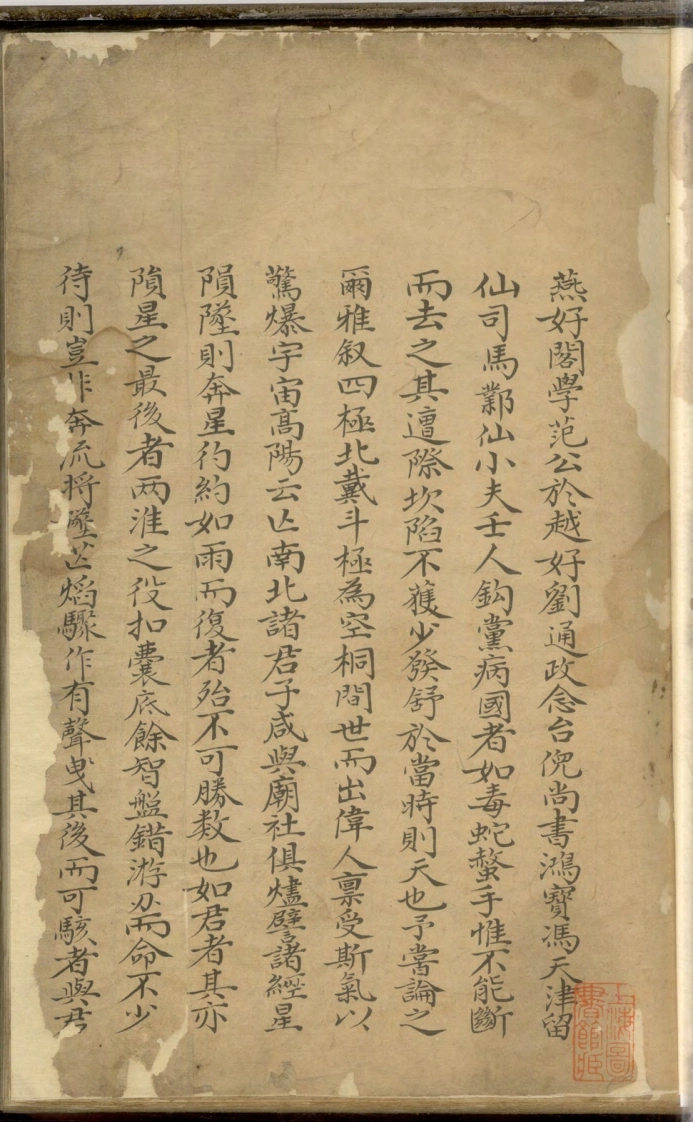 燕好閣學范公於越好劉通政念台倪尚書鴻寶馮天津留
仙司馬鄴仙小夫壬人鈎黨病國者如毒蛇螫手惟不能斷
而去之其遭際坎陷不獲少發舒於當時則天也予嘗論之
爾雅叙四極北戴斗極為空桐間世而出偉人稟受斯氣以
驚爆宇宙高陽云亾南北諸君子咸與廟社俱燼譬諸經星
隕墜則奔星彴約如雨而復者殆不可勝数也如君者其亦
隕星之最後者两淮之役扣囊底餘智盤錯游刃而命不少
待則豈非奔流將墜芒焰驟作有聲曳其後而可駭者與君
上海圖書館藏